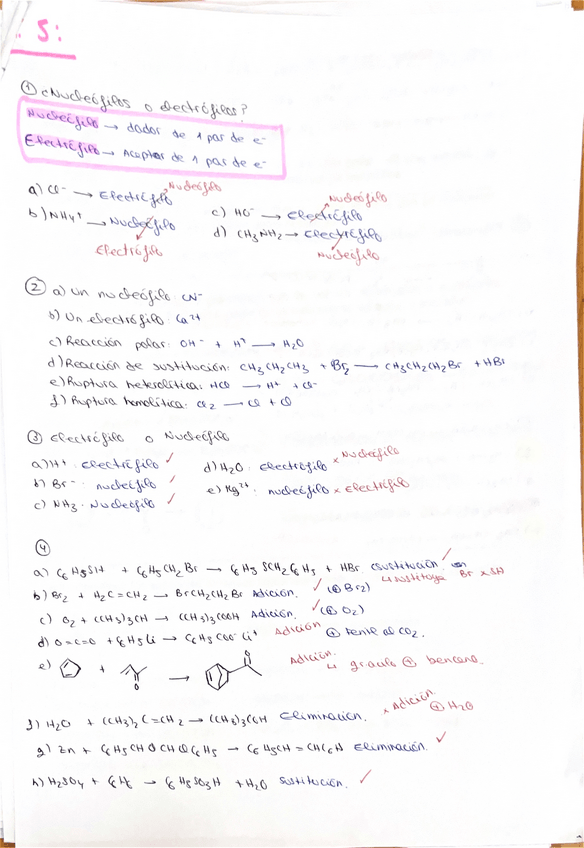 . 5:
① ¿Nucleófilos o electrófilos?
Nucleófilo → dador de 1 par de e⁻
Electrófilo → Aceptor de 1 par de e⁻
a) Cl⁻ → Electrófilo Nucleófilo
b) NH₄⁺ → Nucleófilo Electrófilo
c) HO⁻ → Electrófilo Nucleófilo
d) CH₃NH₂ → Electrófilo Nucleófilo
② a) Un nucleófilo: CN⁻
b) Un electrófilo: Ca²⁺
c) Reacción polar: OH⁻ + H⁺ → H₂O
d) Reacción de sustitución: CH₃CH₂CH₃ + Br₂ → CH₃CH₂CH₂Br + HBr
e) Ruptura heterolítica: HCl → H⁺ + Cl⁻
f) Ruptura homolítica: Cl₂ → Cl + Cl
③ Electrófilo o Nucleófilo
a) H⁺: electrófilo ✓
b) Br⁻: nucleófilo ✓
c) NH₃: Nucleófilo ✓
d) H₂O: electrófilo × Nucleófilo
e) Mg²⁺: nucleófilo × Electrófilo
④
a) C₆H₅SH + C₆H₅CH₂Br → C₆H₅SCH₂C₆H₅ + HBr (sustitución. ✓
↳ sustituye Br × SH
b) Br₂ + H₂C=CH₂ → BrCH₂CH₂Br Adición. ✓ (⊕ Br₂)
c) O₂ + (CH₃)₃CH → (CH₃)₃COOH Adición. ✓ (⊕ O₂)
d) O=C=O + C₆H₅Li → C₆H₅COO⁻Li⁺ Adición ⊕ fenilo al CO₂.
e) + O → O Adición.
↳ grupo ⊕ benceno.
f) H₂O + (CH₃)₂C=CH₂ → (CH₃)₃COH Eliminación. × Adición ⊕ H₂O
g) Zn + C₆H₅CHClCHClC₆H₅ → C₆H₅CH=CHC₆H Eliminación. ✓
h) H₂SO₄ + C₆H₆ → C₆H₅SO₃H + H₂O sustitución. ✓